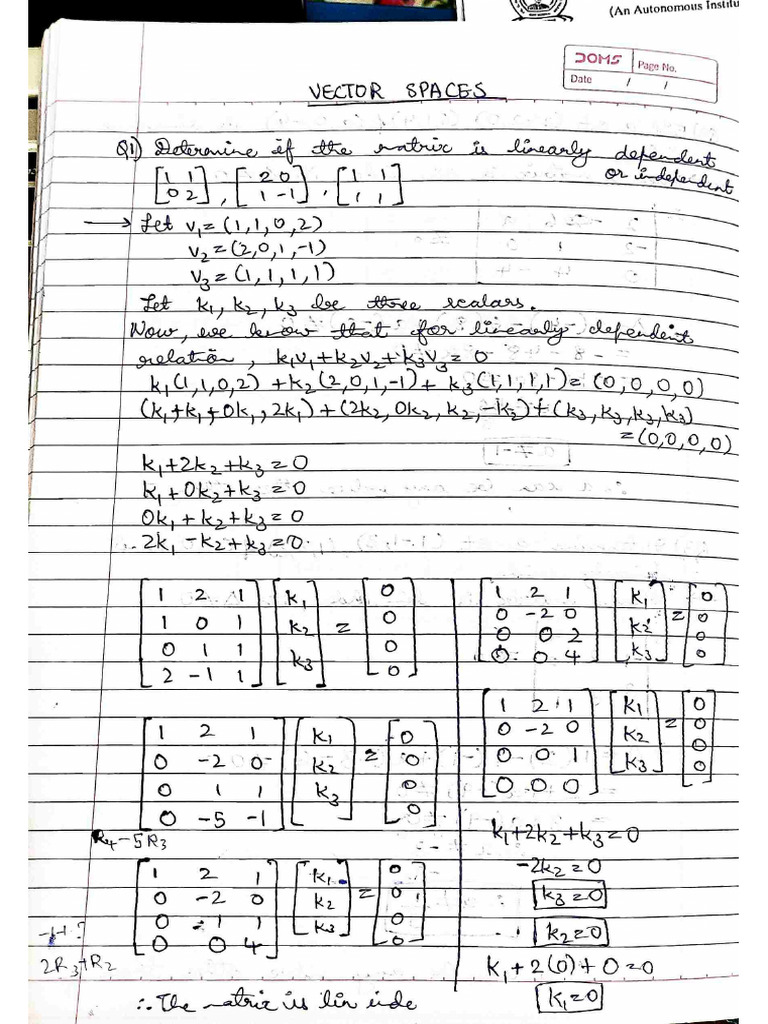 (An Autonomous Institu
DOMS
Page No.
Date / /
VECTOR SPACES
Q1) Determine if the matrix is linearly dependent
or independent
[1 1 0 2], [2 0 1 -1], [1 1 1 1]
→ Let v₁ = (1,1,0,2)
v₂ = (2,0,1,-1)
v₃ = (1,1,1,1)
Let k₁, k₂, k₃ be three scalars.
Now, we know that for linearly dependent
relation, k₁v₁+k₂v₂+k₃v₃=0
k₁(1,1,0,2)+k₂(2,0,1,-1)+k₃(1,1,1,1)=(0,0,0,0)
(k₁+k₁+0k₁,2k₁)+(2k₂,0k₂,k₂,-k₂)+(k₃,k₃,k₃,k₃)
=(0,0,0,0)
k₁+2k₂+k₃=0
k₁+0k₂+k₃=0
0k₁+k₂+k₃=0
2k₁-k₂+k₃=0
[1 2 1 [k₁ [0
1 0 1 k₂ = 0
0 1 1 k₃] 0
2 -1 1] 0]
[1 2 1 [k₁ [0
0 -2 0 k₂ = 0
0 1 1 k₃] 0
0 -5 -1] 0]
R₄-5R₃
[1 2 1 [k₁ [0
0 -2 0 k₂ = 0
0 1 1 k₃] 0
0 0 4] 0]
2R₃+R₂
∴ The matrix is lin inde
[1 2 1 [k₁ [0
0 -2 0 k₂ = 0
0 0 2 k₃] 0
0 0 4] 0]
[1 2 1 [k₁ [0
0 -2 0 k₂ = 0
0 0 1 k₃] 0
0 0 0] 0]
k₁+2k₂+k₃=0
-2k₂=0
k₃=0
k₂=0
k₁+2(0)+0=0
k₁=0